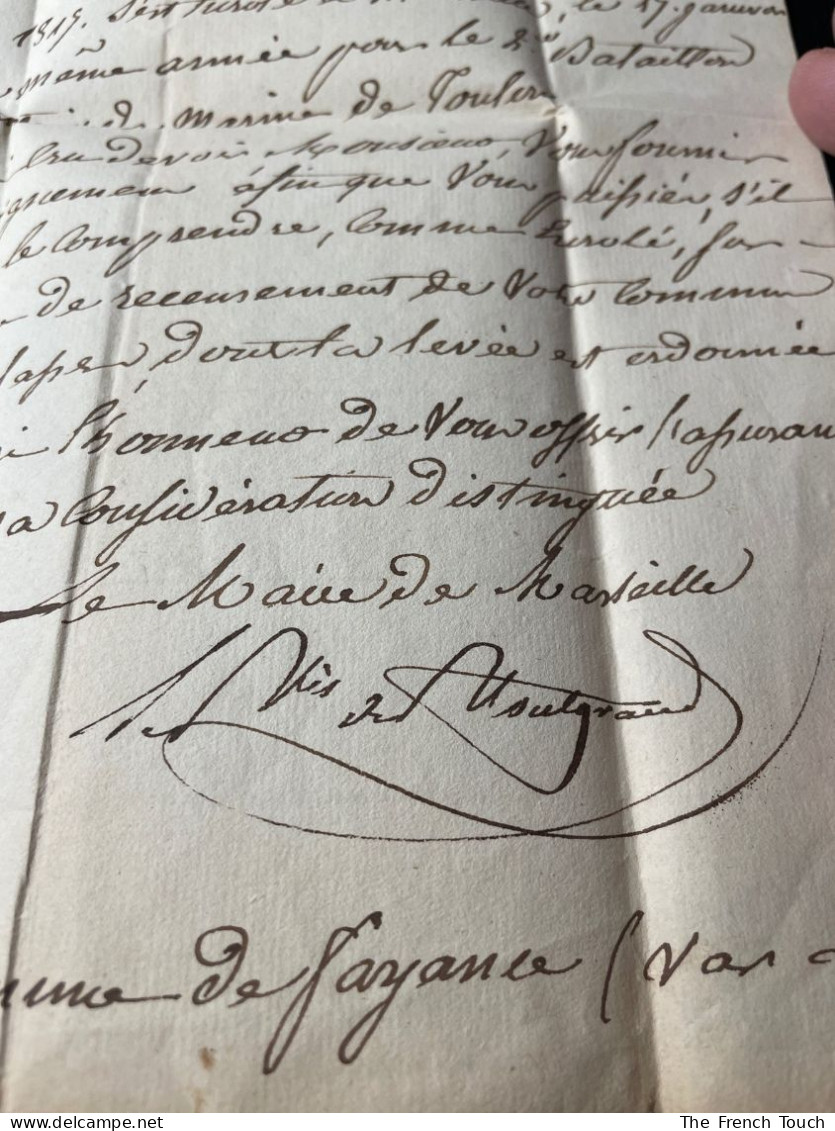 1819. s'est enrolé à le 17. janvier
même armée pour le 2e Bataillon
de marine de Toulon
cru devoir Monsieur, Vous fournir
afin que Vous puissiéz, s'il
le comprendre, comme Enrolé, sur
de recensement de Votre commune
dont la levée est ordonnée
l'honneur de Vous offrir l'assuran
a considération distinguée
Le Maire de Marseille
le Mis de Montgrand
mune de Fayance (Var
The French Touch